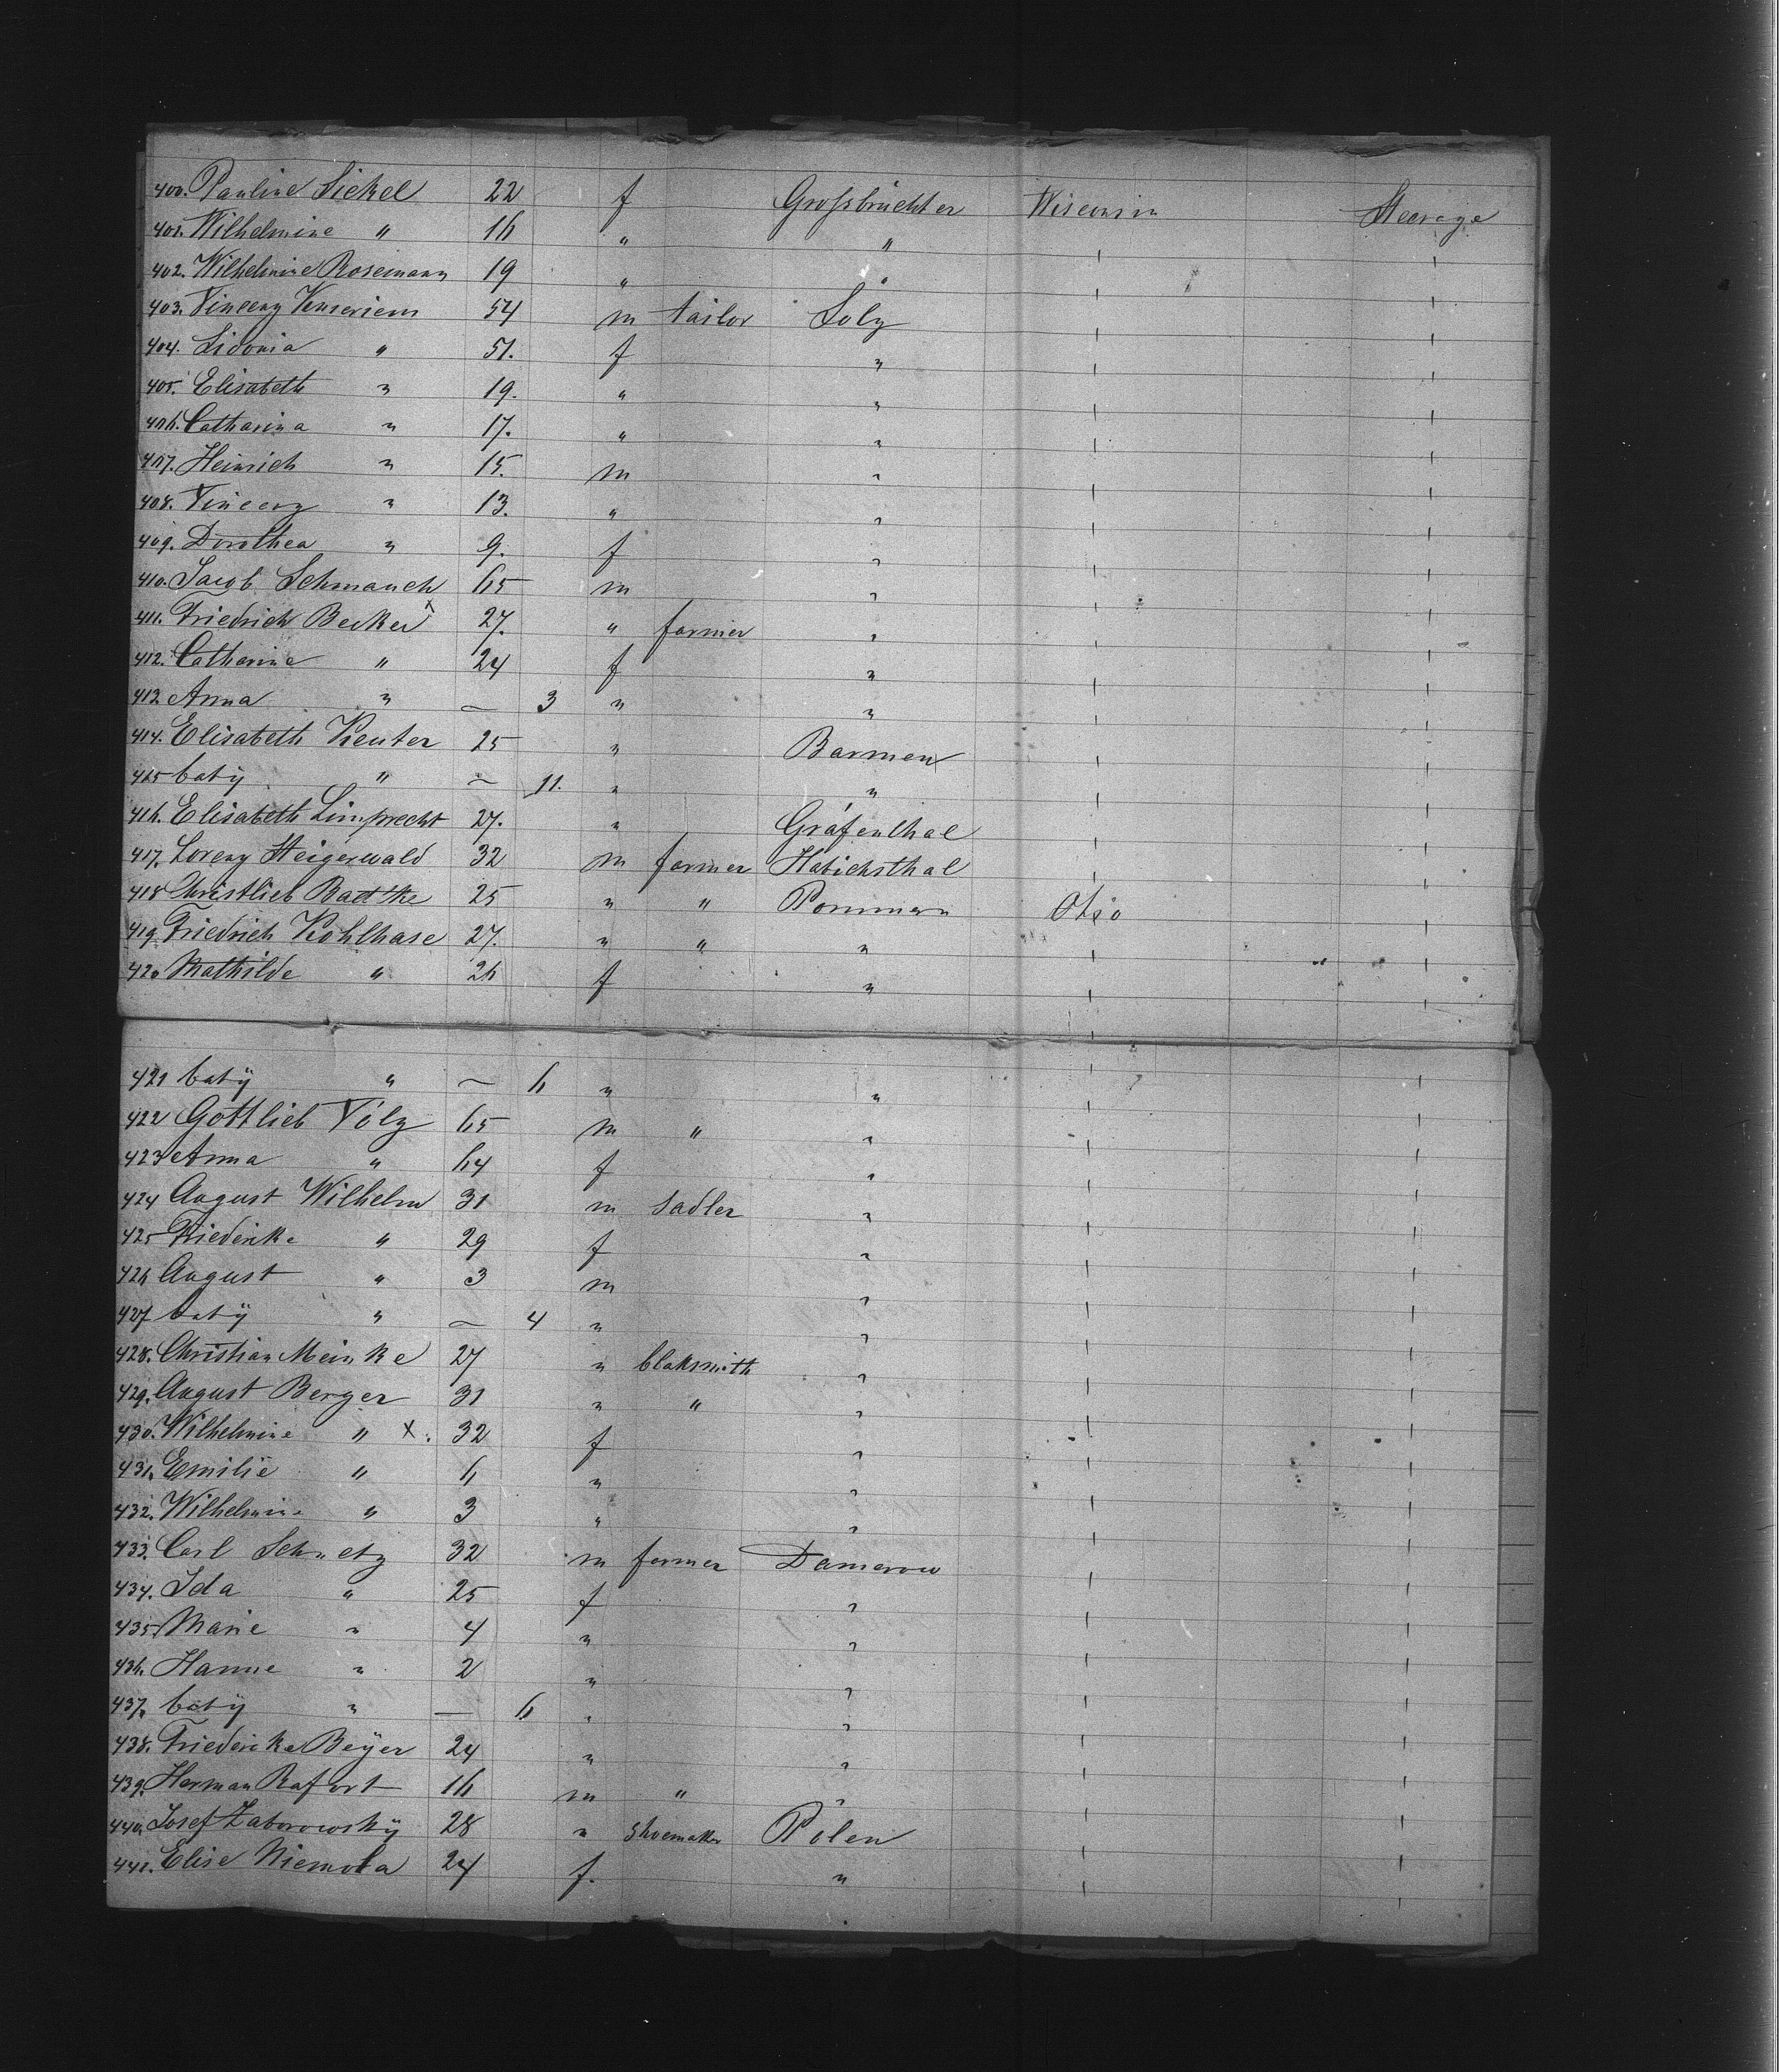 400. Pauline Sickel 22 f Großbrüchter Wisconsin Steerage
401. Wilhelmine " 16 " " ı ı
402. Wilhelmine Rosemann 19 " " ı ı
403. Vincenz 54 m tailor Solz ı ı
404. Sidonia " 51. f " ı ı
405. Elisabeth " 19. " " ı ı
406. Catharina " 17. " " ı ı
407. Heinrich " 15. m " ı ı
408. Vincenz " 13. " " ı ı
409. Dorothea " 9. f " ı ı
410. Jacob Schmauch 65 m " ı ı
411. Friedrich Becker x 27. " farmer " ı ı
412. Catherine " 24 f " ı ı
413. Anna " — 3 " " ı ı
414. Elisabeth Reuter 25 " Barmen ı ı
415 baby " — 11. " " ı ı
416. Elisabeth Limprecht 27. " Gräfenthal ı ı
417. Lorenz Steigerwald 32 m farmer Habichsthal ı ı
418 Christlieb Badtke 25 " " Pommern Ohio ı
419. Friedrich Kohlhase 27. " " " ı ı
420 Mathilde " 26 f " ı ı
421 baby " — 6 " " ı ı
422 Gottlieb Völz 65 m " " ı ı
423 Anna " 64 f " ı ı
424 August Wilhelm 31 m sadler " ı ı
425 Friederike " 29 f " ı ı
426 August " 3 m " ı ı
427 baby " — 4 " " ı ı
428. Christian Meinke 27 " blaksmith " ı ı
429. August Berger 31 " " " ı ı
430. Wilhelmine " x. 32 f " ı ı
431. Emilie " 6 " " ı ı
432. Wilhelmine " 3 " " ı ı
433. Carl Schuetz 32 m farmer Damerow ı ı
434. Ida " 25 f " ı ı
435. Marie " 4 " " ı ı
436. Hanne " 2 " " ı ı
437. baby " — 6 " " ı ı
438. Friederike Beyer 24 " " ı ı
439. Herman Rafort 16 m " " ı ı
440. Josef Zaborowsky 28 " shoemaker Polen ı ı
441. Elise Niemota 24 f. " ı ı